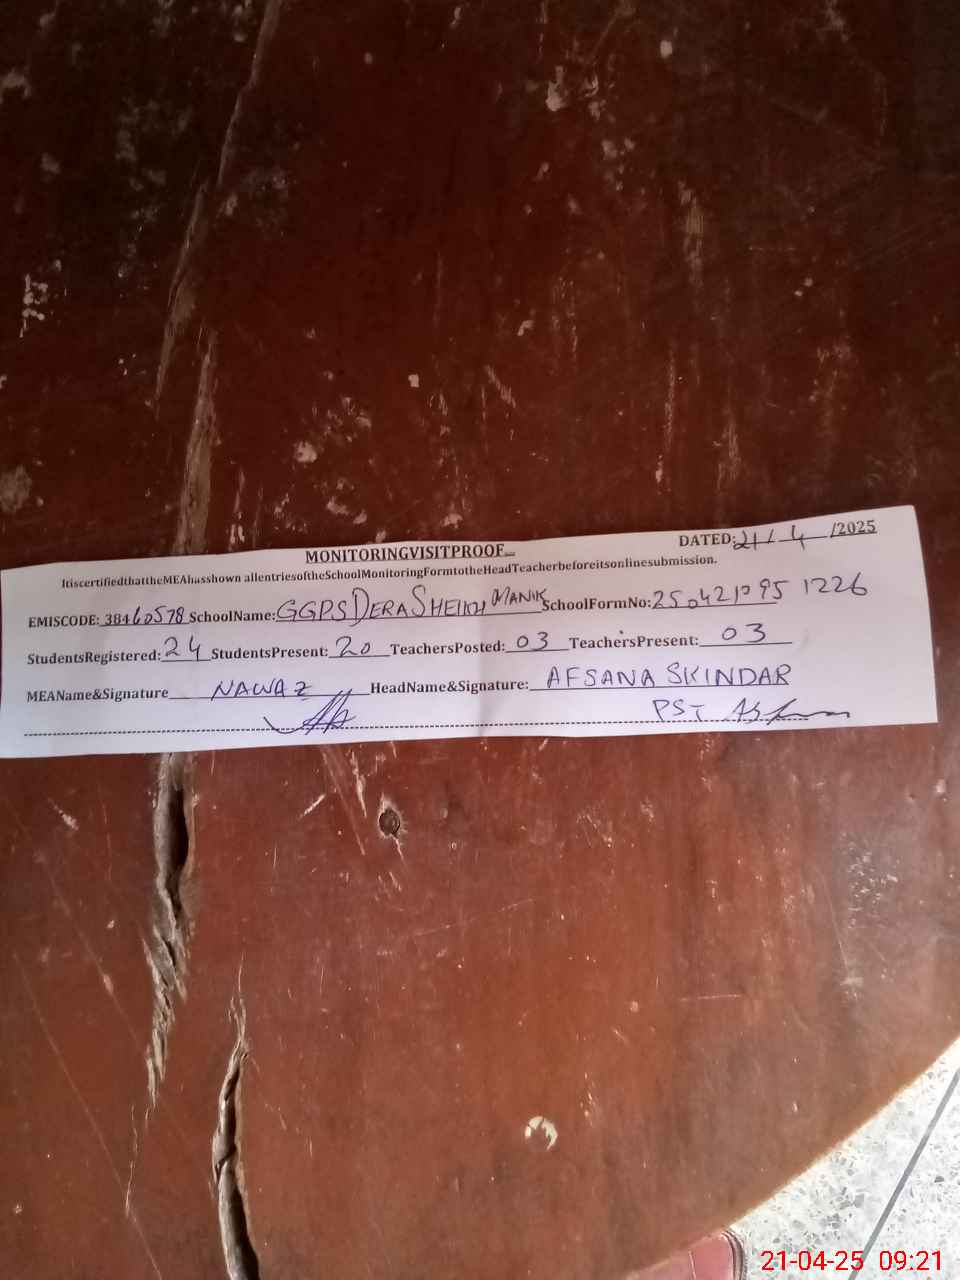 MONITORINGVISITPROOF
DATED:21/4/2025
ItiscertifiedthattheMEAhasshown allentriesoftheSchoolMonitoringFormtotheHeadTeacherbeforeitsonlinesubmission.
EMISCODE: 38460578 SchoolName: GGPS DERA SHEIKH MANIK SchoolFormNo: 2504210951226
StudentsRegistered: 24 StudentsPresent: 20 TeachersPosted: 03 TeachersPresent: 03
MEAName&Signature NAWAZ HeadName&Signature: AFSANA SKINDAR
PST
21-04-25 09:21